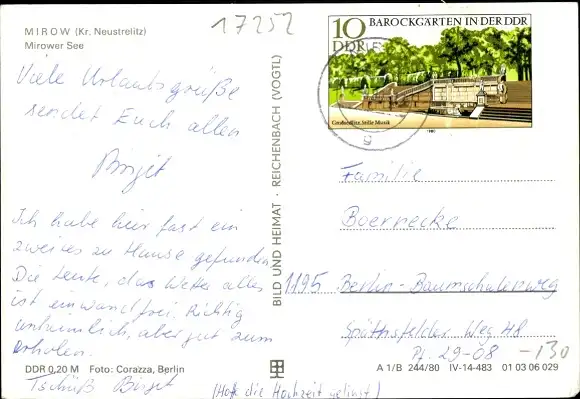 17252
MIROW (Kr. Neustrelitz)
Mirower See
Viele Urlaubsgrüße
sendet Euch allen
Birgit
Ich habe hier fast ein
zweites zu Hause gefunden
Die Leute, das Wetter alles
ist einwandfrei. Richtig
unheimlich, aber gut zum
erholen.
DDR 0,20 M Foto: Corazza, Berlin
Tschüß Birgit
(Hoffe die Hochzeit gelingt)
BILD UND HEIMAT · REICHENBACH (VOGTL)
10 BAROCKGÄRTEN IN DER DDR
DDR
Großsedlitz, Stille Musik
1980
g
Familie
Boernecke
1195 Berlin-Baumschulenweg
Späthsfelder Weg 48
Pf. 29-08
-130
A 1/B 244/80 IV-14-483 01 03 06 029